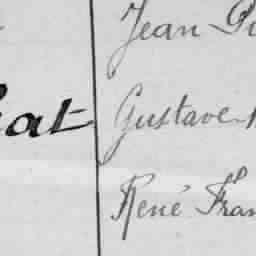 Jean
at Gustave
René Fran